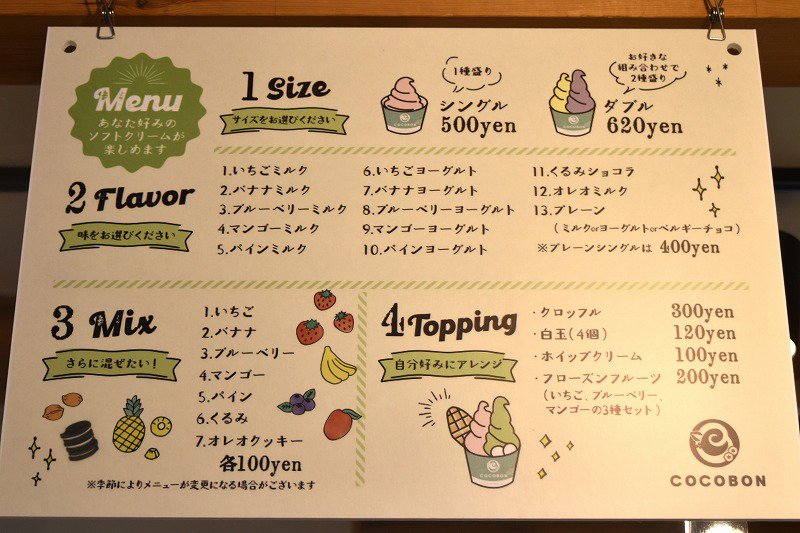 Menu
あなた好みの
ソフトクリームが
楽しめます
1 Size
サイズをお選びください
1種盛り
シングル
500yen
お好きな
組み合わせで
2種盛り
ダブル
620yen
COCOBON
COCOBON
2 Flavor
味をお選びください
1.いちごミルク
2.バナナミルク
3.ブルーベリーミルク
4.マンゴーミルク
5.パインミルク
6.いちごヨーグルト
7.バナナヨーグルト
8.ブルーベリーヨーグルト
9.マンゴーヨーグルト
10.パインヨーグルト
11.くるみショコラ
12.オレオミルク
13.プレーン
(ミルクorヨーグルトorベルギーチョコ)
※プレーンシングルは 400yen
3 Mix
さらに混ぜたい!
1.いちご
2.バナナ
3.ブルーベリー
4.マンゴー
5.パイン
6.くるみ
7.オレオクッキー
各100yen
※季節によりメニューが変更になる場合がございます
4 Topping
自分好みにアレンジ
・クロッフル 300yen
・白玉(4個) 120yen
・ホイップクリーム 100yen
・フローズンフルーツ 200yen
(いちご、ブルーベリー、
マンゴーの3種セット)
COCOBON
COCOBON